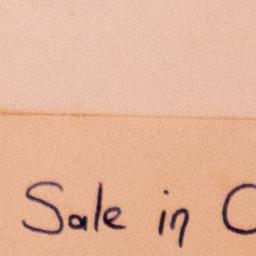 Sale in